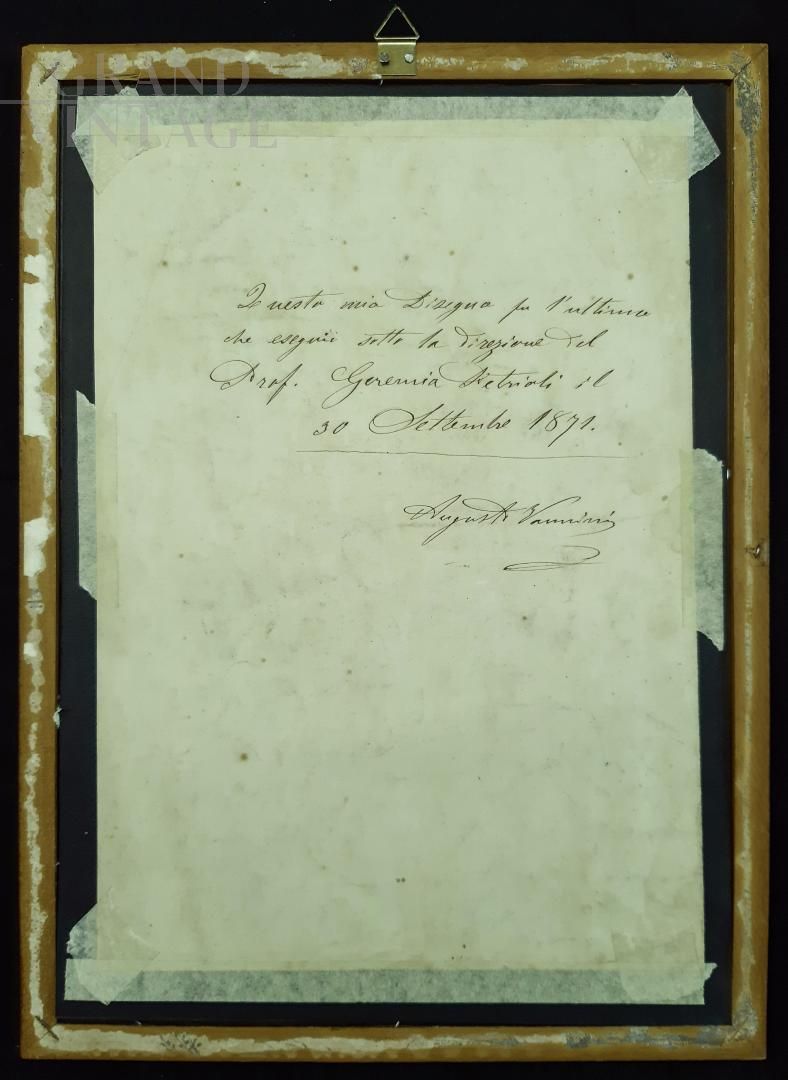 GRAND
VINTAGE
Questo mio Disegno fu l'ultimo
che eseguii sotto la direzione del
Prof. Geremia Petrioli il
30 Settembre 1871.
Augusto Vannini